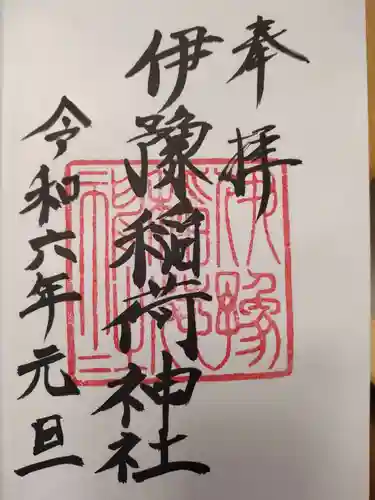 奉拝
伊豫稲荷神社
令和六年元旦